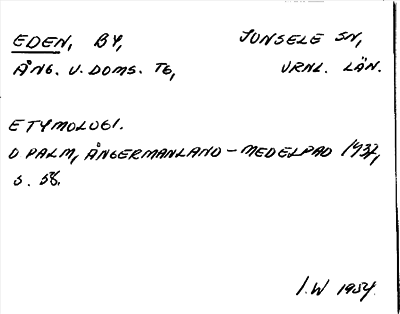 EDEN, BY, JUNSELE SN,
ÅNG. V. DOMS. TG, VRNL. LÄN.
ETYMOLOGI.
D PALM, ÅNGERMANLAND-MEDELPAD 1937,
S. 58.
I.W 1954.